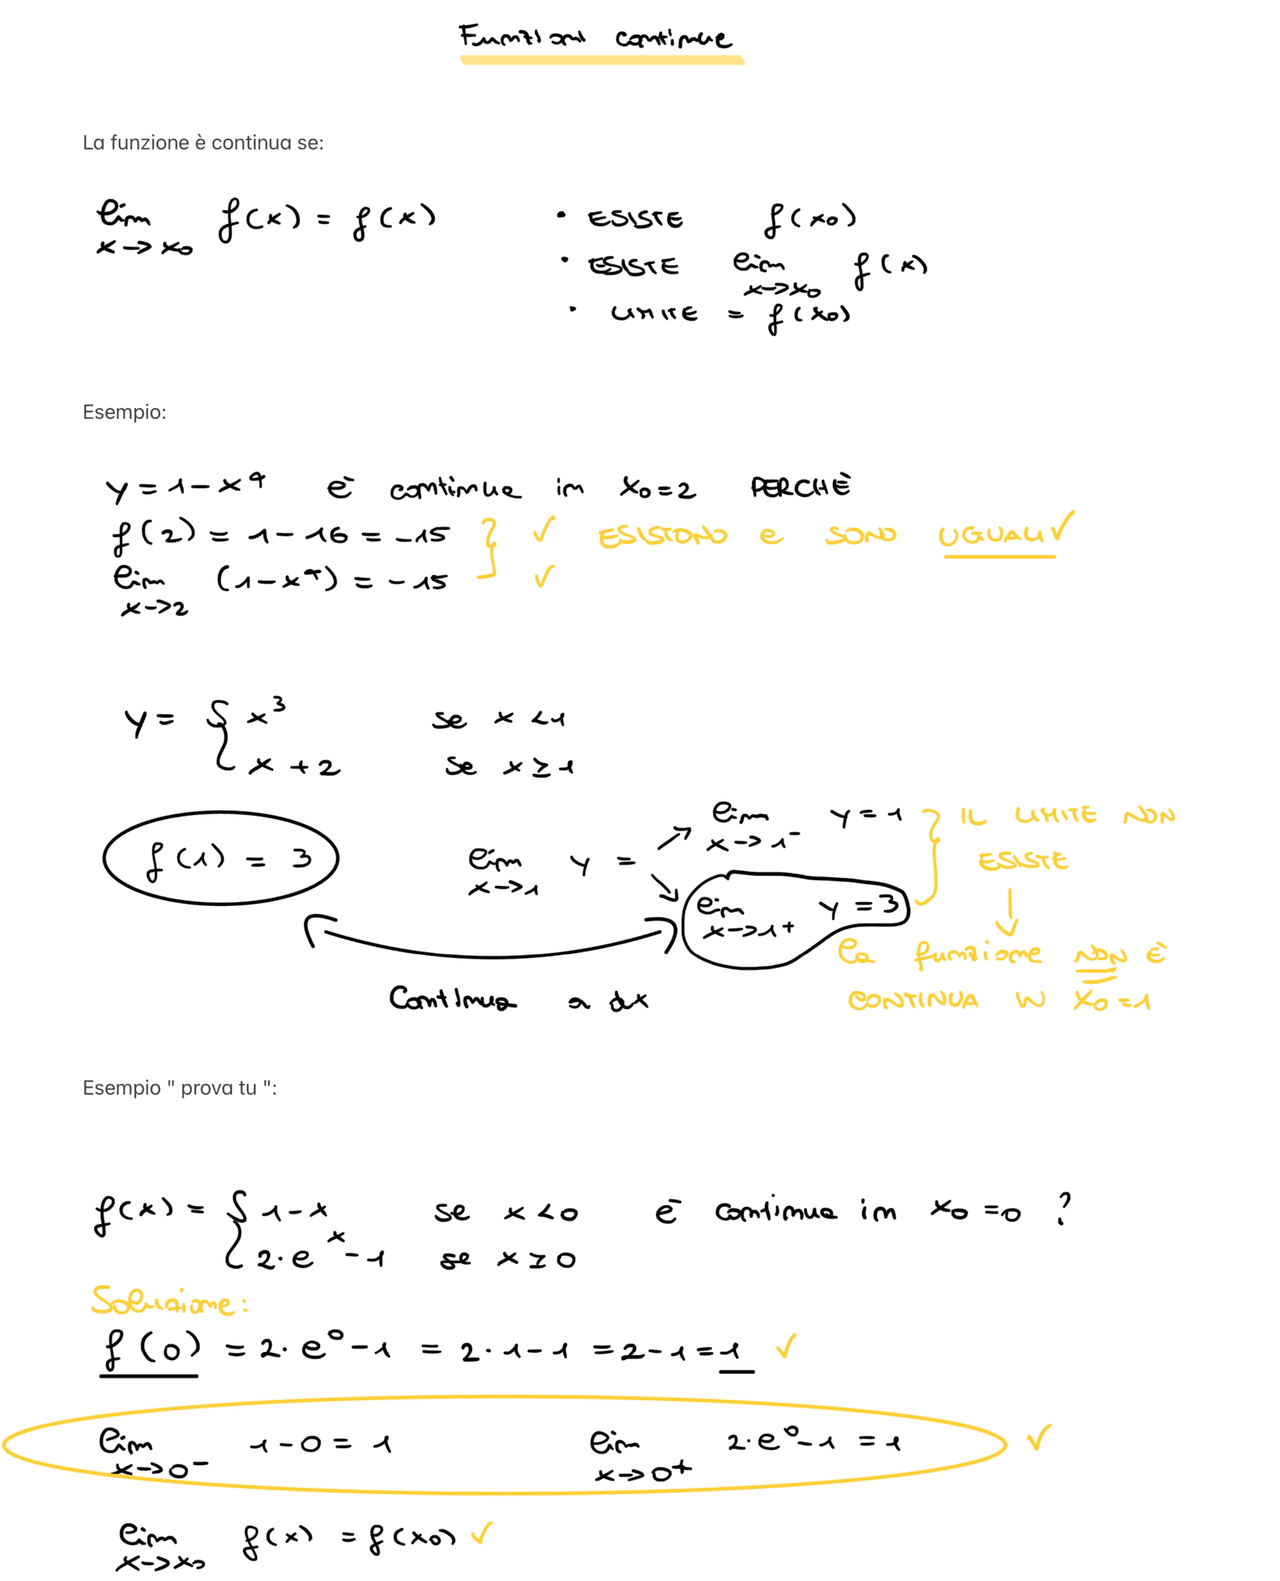 Funzioni continue
La funzione è continua se:
lim x->x0 f(x) = f(x)
• ESISTE f(x0)
• ESISTE lim x->x0 f(x)
• LIMITE = f(x0)
Esempio:
y = 1 - x⁴ è continua in x0=2 PERCHÈ
f(2) = 1 - 16 = -15 } ✓ ESISTONO e SONO UGUALI ✓
lim x->2 (1-x⁴) = -15 ✓
y = { x³ se x < 1
x + 2 se x ≥ 1
f(1) = 3
lim x->1 y =
lim x->1⁻ y = 1
lim x->1⁺ y = 3
} IL LIMITE NON
ESISTE
↓
la funzione NON È
CONTINUA IN x0=1
Continua a dx
Esempio " prova tu ":
f(x) = { 1-x se x < 0 è continua in x0 = 0 ?
2·eˣ - 1 se x ≥ 0
Soluzione:
f(0) = 2·e⁰ - 1 = 2·1 - 1 = 2 - 1 = 1 ✓
lim x->0⁻ 1 - 0 = 1 lim x->0⁺ 2·e⁰ - 1 = 1 ✓
lim x->x0 f(x) = f(x0) ✓